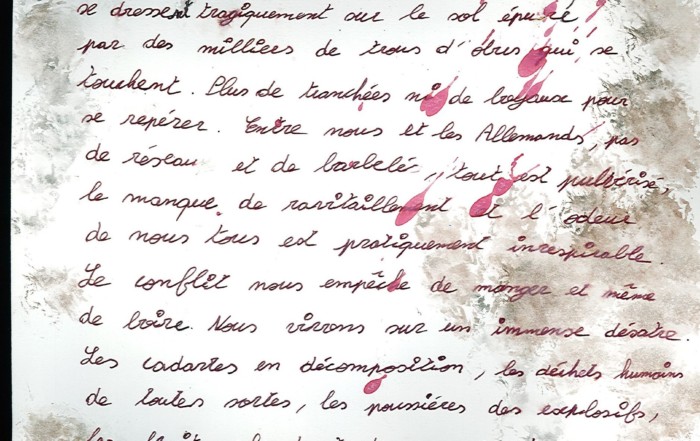 se dressent tragiquement sur le sol
par des milliers de trous d'obus qui se
touchent. Plus de tranchées ni de boyaux pour
se repérer. Entre nous et les Allemands, pas
de réseau et de barbelé, tout est pulvérisé,
le manque de ravitaillement et l'odeur
de nous tous est pratiquement irrespirable.
Le conflit nous empêche de manger et même
de boire. Nous vivons sur un immense désatre.
Les cadavres en décomposition, les déchets humains
de toutes sortes, les poussières des explosifs,